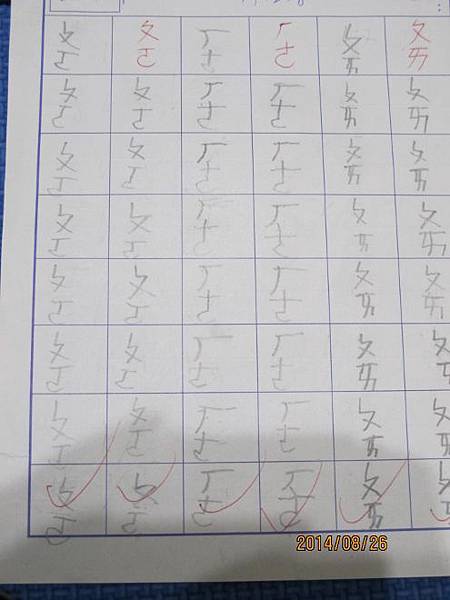 ㄆㄛ ㄆㄛ ㄏㄜ ㄏㄜ ㄆㄞ ㄆㄞ
ㄆㄛ ㄆㄛ ㄏㄜ ㄏㄜ ㄆㄞ ㄆㄞ
ㄆㄛ ㄆㄛ ㄏㄜ ㄏㄜ ㄆㄞ ㄆㄞ
ㄆㄛ ㄆㄛ ㄏㄜ ㄏㄜ ㄆㄞ ㄆㄞ
ㄆㄛ ㄆㄛ ㄏㄜ ㄏㄜ ㄆㄞ ㄆㄞ
ㄆㄛ ㄆㄛ ㄏㄜ ㄏㄜ ㄆㄞ ㄆㄞ
ㄆㄛ ㄆㄛ ㄏㄜ ㄏㄜ ㄆㄞ ㄆㄞ
ㄆㄛ ㄆㄛ ㄏㄜ ㄏㄜ ㄆㄞ
2014/08/26